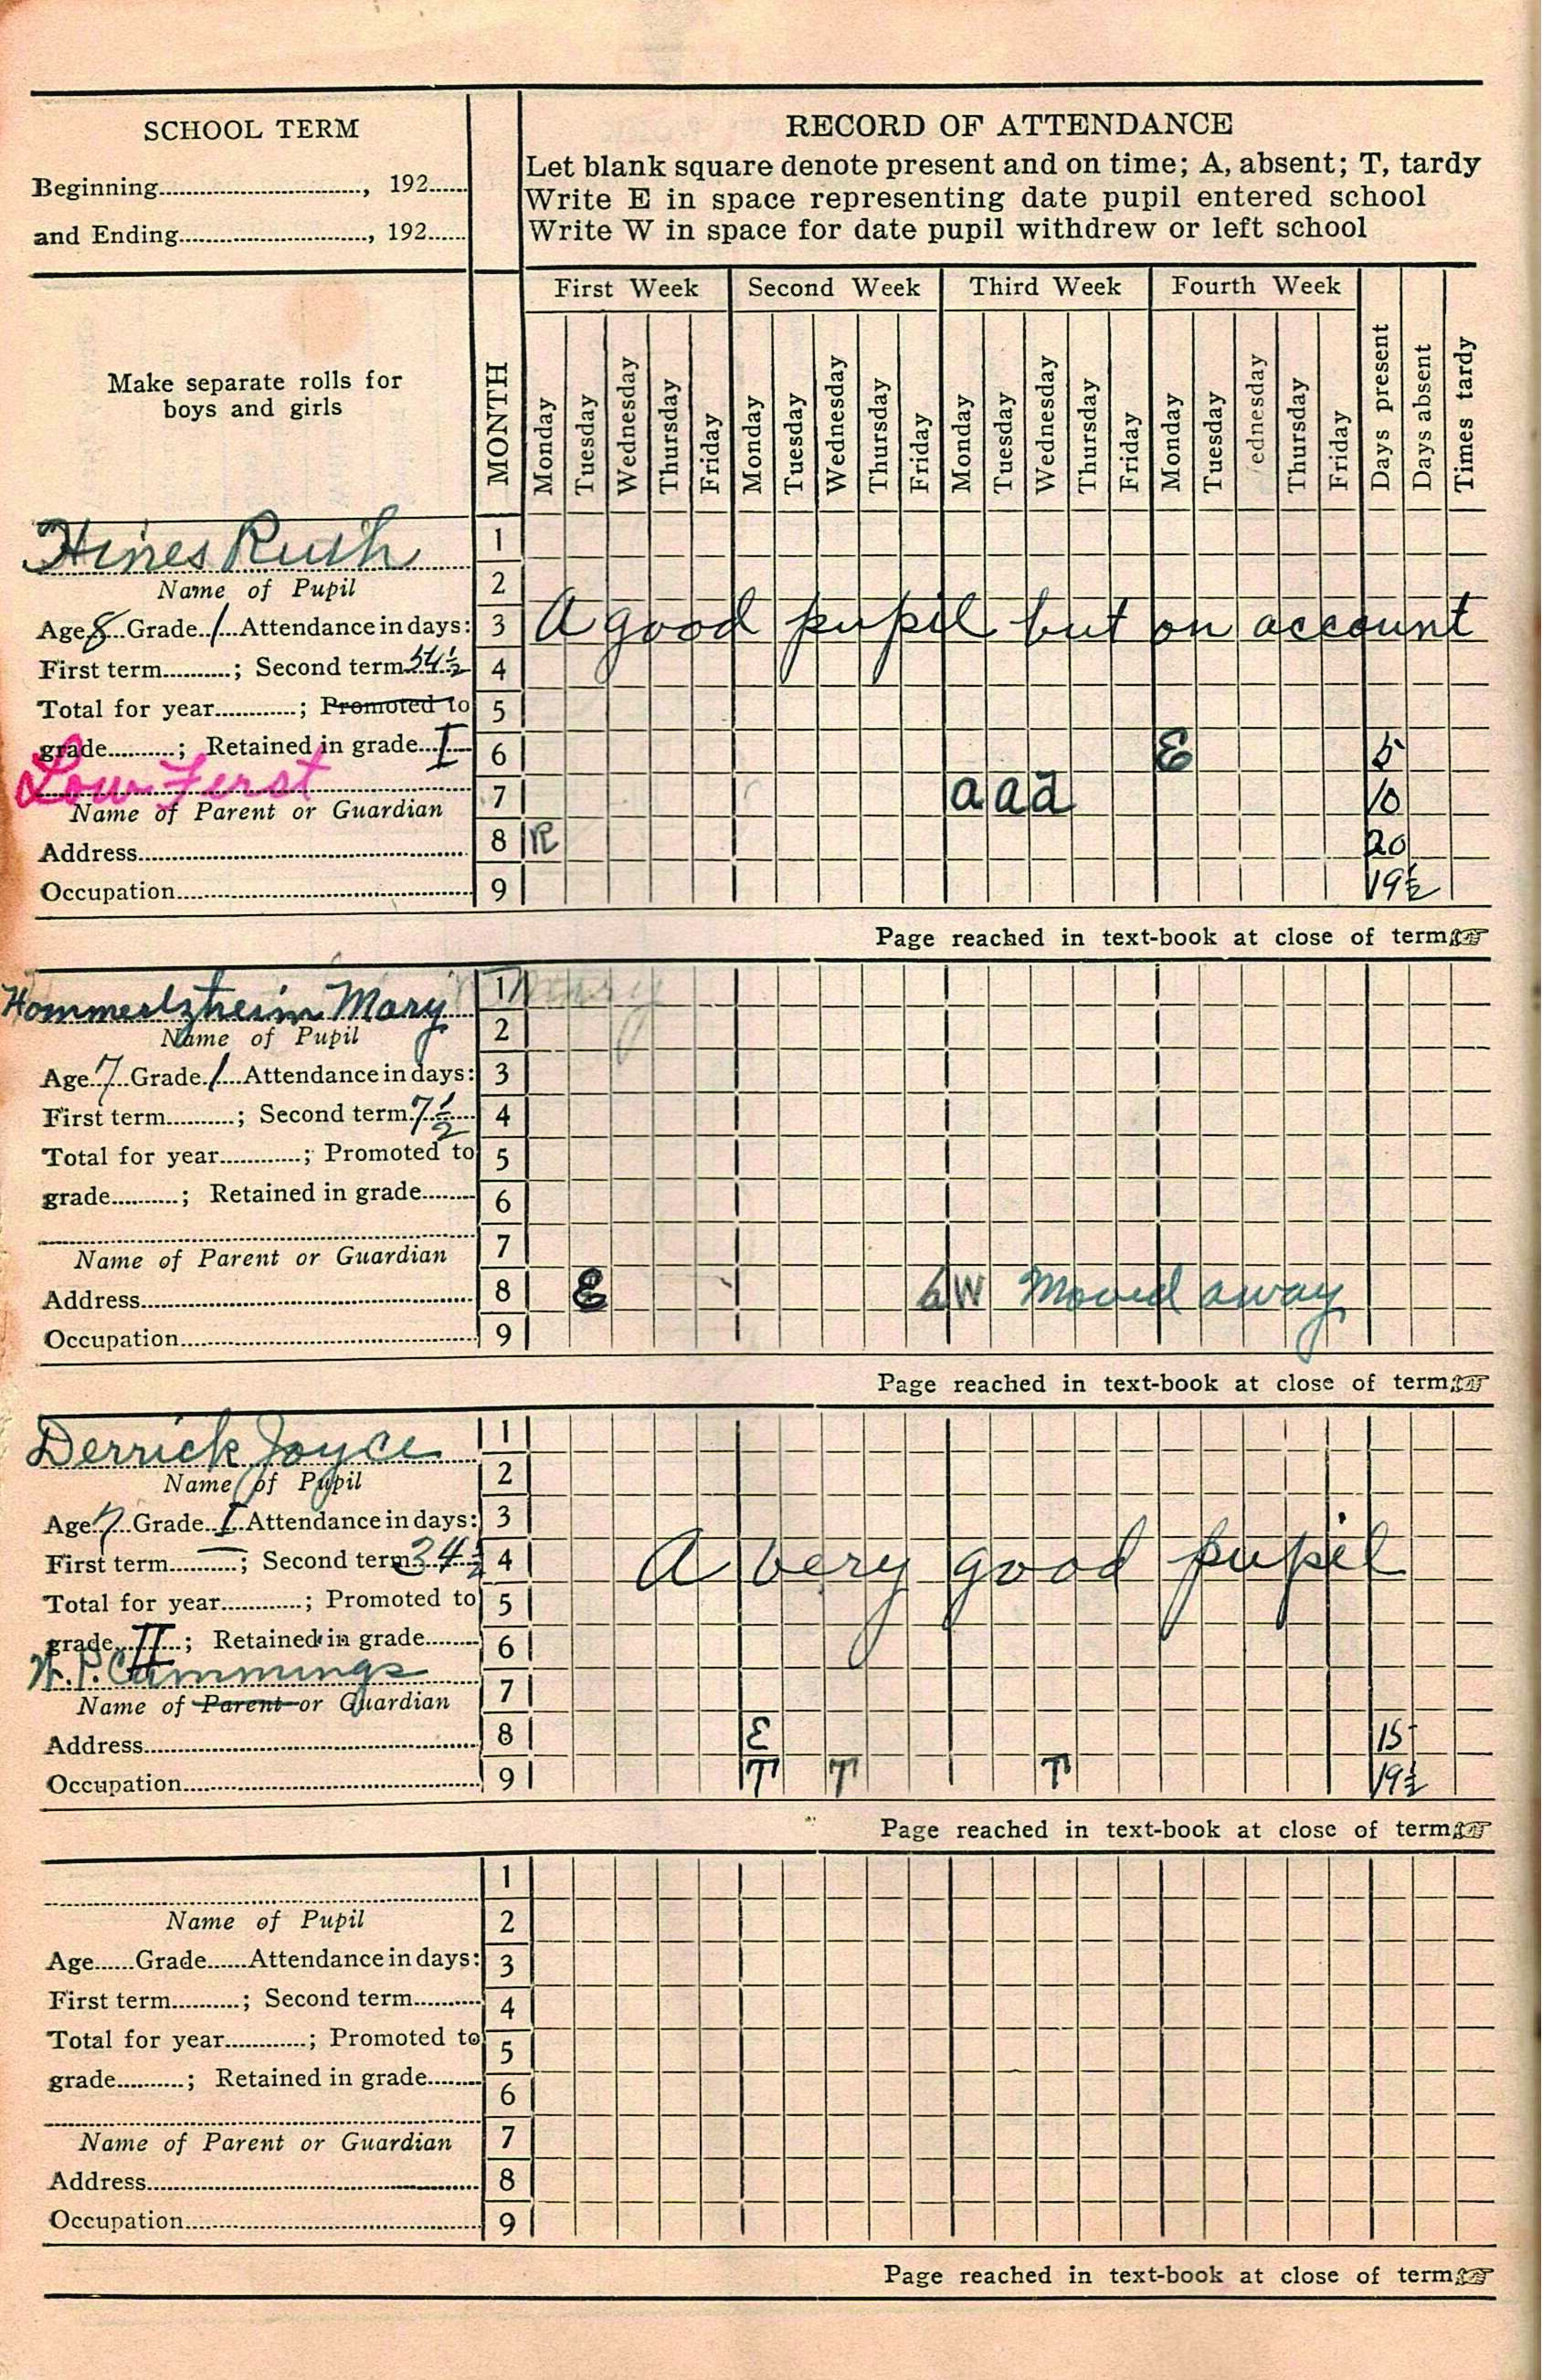 SCHOOL TERM
Beginning........................, 192......
and Ending........................, 192......
RECORD OF ATTENDANCE
Let blank square denote present and on time; A, absent; T, tardy
Write E in space representing date pupil entered school
Write W in space for date pupil withdrew or left school
Make separate rolls for
boys and girls
MONTH
First Week Second Week Third Week Fourth Week
Monday Tuesday Wednesday Thursday Friday Monday Tuesday Wednesday Thursday Friday Monday Tuesday Wednesday Thursday Friday Monday Tuesday ednesday Thursday Friday Days present Days absent Times tardy
Hines Ruth 1
Name of Pupil 2
Age 8 Grade 1 Attendance in days: 3 A good pupil but on account
First term..........; Second term 54 1/2 4
Total for year............; Promoted to 5
grade..........; Retained in grade I 6 E 5
Low First 7 a a a 10
Name of Parent or Guardian
Address 8 R 20
Occupation 9 19 1/2
Page reached in text-book at close of term ☞
Hommertzheim Mary 1 Mary
Name of Pupil 2
Age 7 Grade 1 Attendance in days: 3
First term..........; Second term 7 1/2 4
Total for year............; Promoted to 5
grade..........; Retained in grade........ 6
7
Name of Parent or Guardian
Address 8 E W Moved away
Occupation 9
Page reached in text-book at close of term ☞
Derrick Joyce 1
Name of Pupil 2
Age 7 Grade I Attendance in days: 3
First term..........; Second term 34 1/2 4 A very good pupil
Total for year............; Promoted to 5
grade II; Retained in grade........ 6
W. P. Cummings 7
Name of Parent or Guardian
Address 8 E 15
Occupation 9 T T T 19 1/2
Page reached in text-book at close of term ☞
1
Name of Pupil 2
Age......Grade......Attendance in days: 3
First term..........; Second term.......... 4
Total for year............; Promoted to 5
grade..........; Retained in grade........ 6
Name of Parent or Guardian 7
Address 8
Occupation 9
Page reached in text-book at close of term ☞